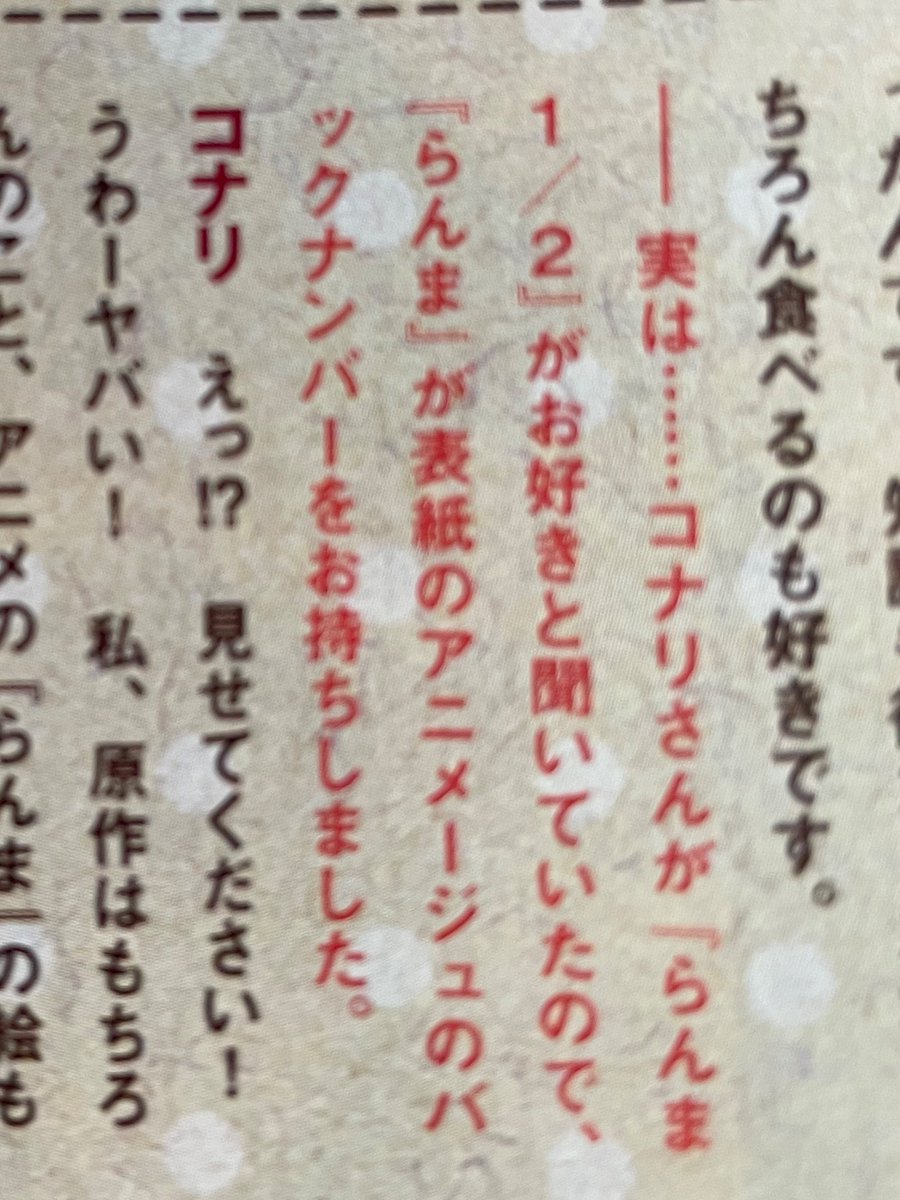 ちろん食べるのも好きです。
――実は……コナリさんが『らんま
1／2』がお好きと聞いていたので、
『らんま』が表紙のアニメージュのバ
ックナンバーをお持ちしました。
コナリ　えっ!?　見せてください！
うわーヤバい！　私、原作はもちろ
んのこと、アニメの『らんま』の絵も